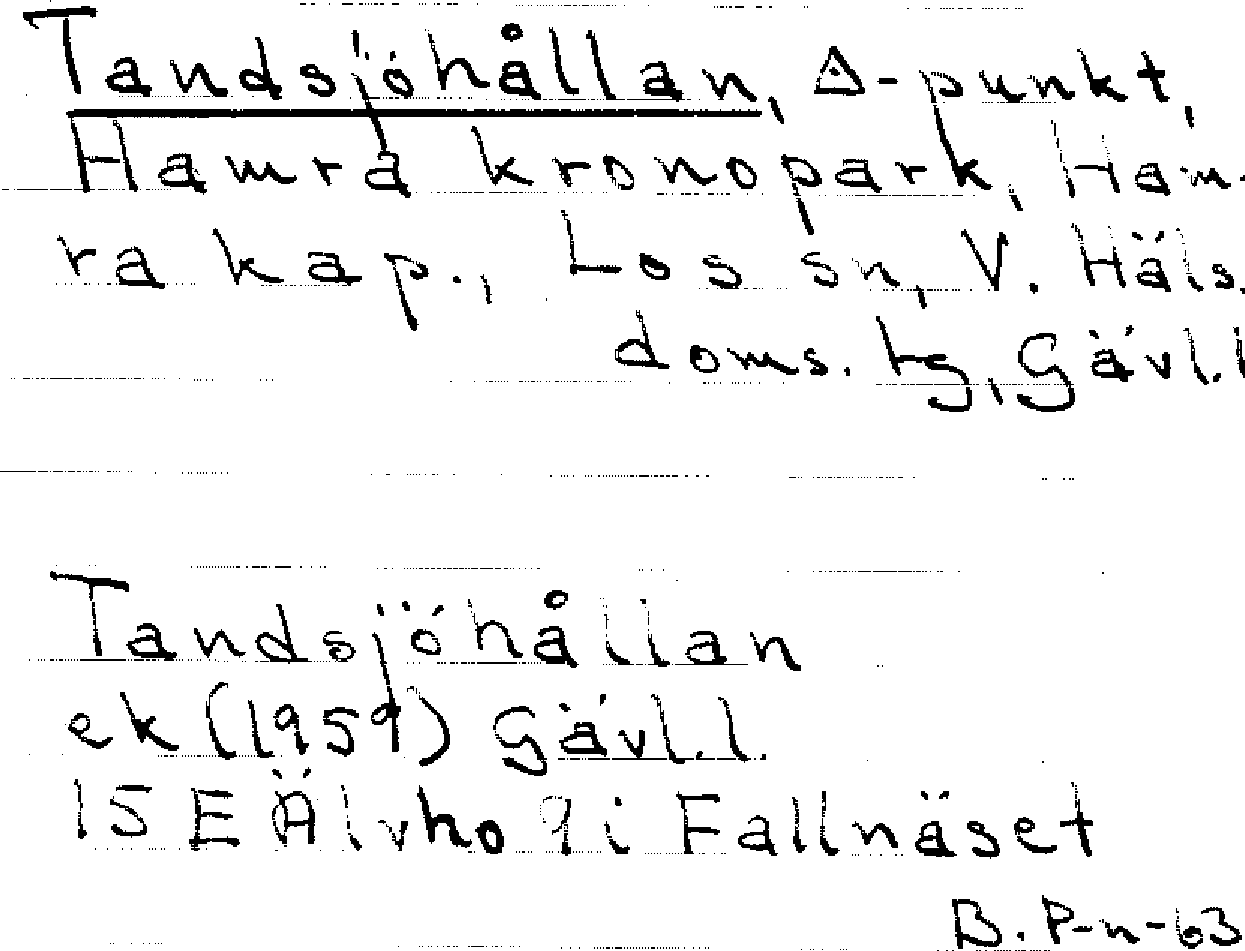 Tandsjöhållan, △-punkt,
Hamra kronopark, Ham-
ra kap., Los sn, V. Häls.
doms. tg, Gävl.l
Tandsjöhållan
ek (1959) Gävl.l.
15E Älvho 9i Fallnäset
B. P-n-63